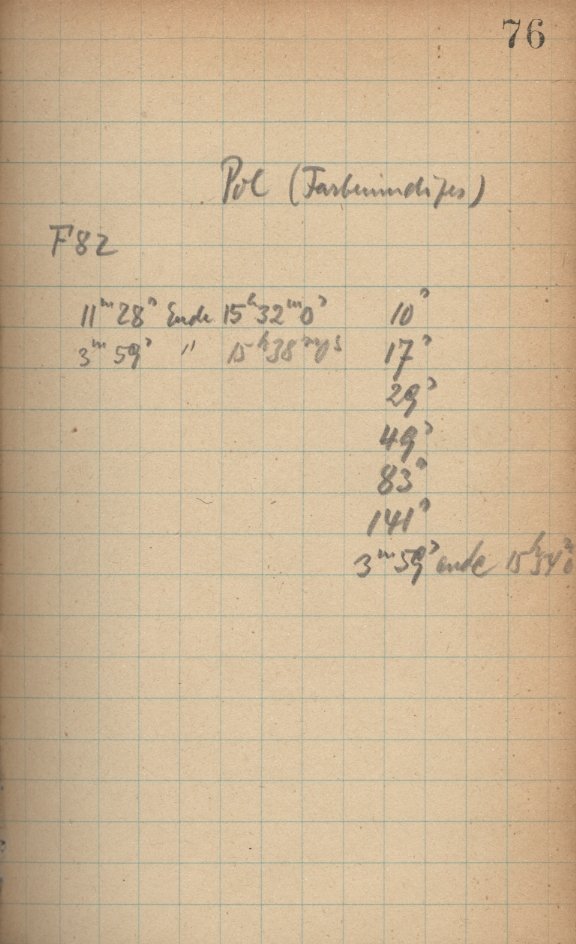 76
Pol (Farbenindizes)
F82
11ᵐ 28ˢ Ende 15ʰ 32ᵐ 0ˢ 10ˢ
3ᵐ 59ˢ " 15ʰ 38ᵐ 17ˢ
29ˢ
49ˢ
83ˢ
141ˢ
3ᵐ 59ˢ ende 15ʰ 54ᵐ